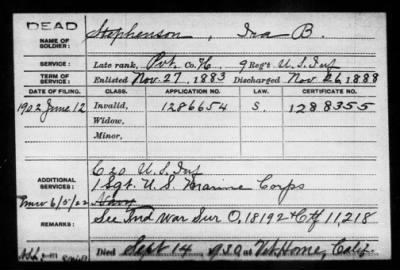 DEAD
NAME OF SOLDIER: Stephenson, Ira B.
SERVICE: Late rank, Pvt. Co. H, 9 Reg't U.S. Inf
TERM OF SERVICE: Enlisted Nov. 27, 1883 Discharged Nov. 26, 1888
DATE OF FILING. CLASS. APPLICATION NO. LAW. CERTIFICATE NO.
1902 June 12 Invalid, 1286654 S. 1288355
Widow,
Minor,
ADDITIONAL SERVICES: C 20 U.S. Inf
1 Sgt. U.S. Marine Corps
6/5/22 Navy
REMARKS: See Ind War Sur O. 18192 + Ctf 11,218
Died Sept 14, 1930 at Vet. Home, Calif.